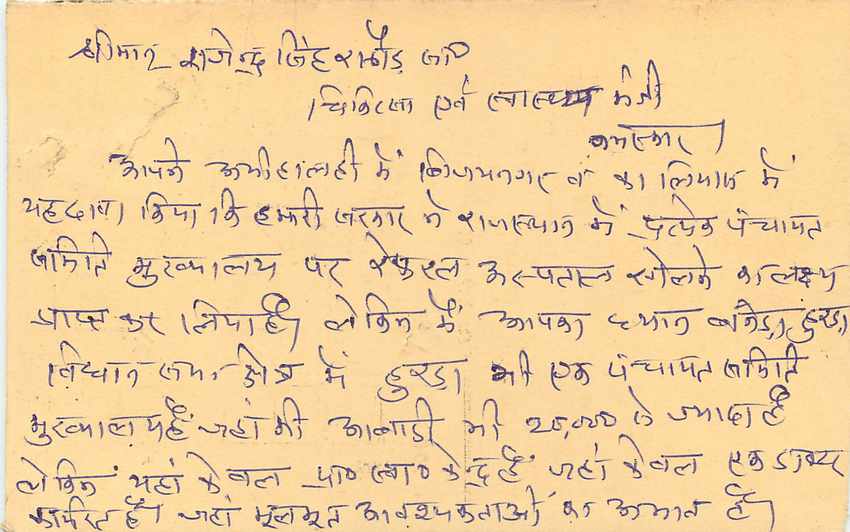 श्रीमान राजेन्द्र सिंह राठौड़ जी
चिकित्सा एवं स्वास्थ्य मंत्री
नमस्कार।
आपने अभी हाल ही में बिजयनगर व का लियास में
यह दावा किया कि हमारी सरकार ने राजस्थान में प्रत्येक पंचायत
समिति मुख्यालय पर रेफरल अस्पताल खोलने का लक्ष्य
प्राप्त कर लिया है। लेकिन मैं आपका ध्यान बनेड़ा, हुरडा
विधान सभा क्षेत्र में हुरडा भी एक पंचायत समिति
मुख्यालय है जहां की आबादी भी २०,००० से ज्यादा है
लेकिन यहां केवल प्रा० स्वा० केन्द्र है जहां केवल एक डाक्टर
कार्यरत है। जहां मूलभूत आवश्यकताओं का अभाव है।